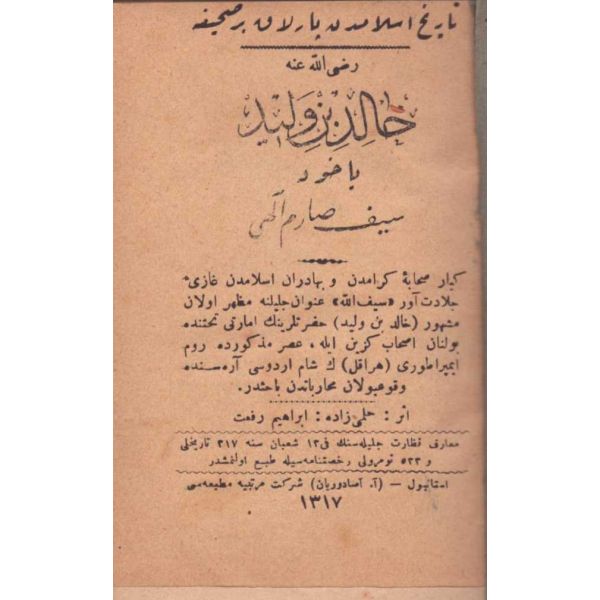 تاریخ اسلامدن پارلاق بر صحیفه
رضی الله عنه
خالد بن ولید
یاخود
سیف صارم الهی
کبار صحابهٔ کرامدن و بهادران اسلامدن غازیٔ
جلادت آور «سیف الله» عنوان جلیلنه مظهر اولان
مشهور (خالد بن ولید) حضرتلرینك امارتی تحتنده
بولنان اصحاب کزین ایله ، عصر مذکورده روم
ایمپراطوری (هراقل) ك شام اردوسی آره سنده
وقوعبولان محارباتدن باحثدر.
اثر : حلمی زاده : ابراهیم رفعت
معارف نظارت جلیله سنك فی ١٣ شعبان سنه ٣١٧ تاریخلی
و ٥٢٣ نومرولی رخصتنامه سیله طبع اولنمشدر
استانبول — (آ. آصادوریان) شرکت مرتبیه مطبعه سی
١٣١٧